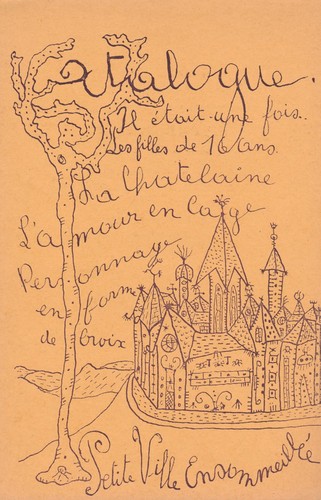 Catalogue.
Il était une fois..
Les filles de 16 ans
La Chatelaine
L'amour en Cage
Personnage
en form
de Croix
Petite Ville Ensommeillée